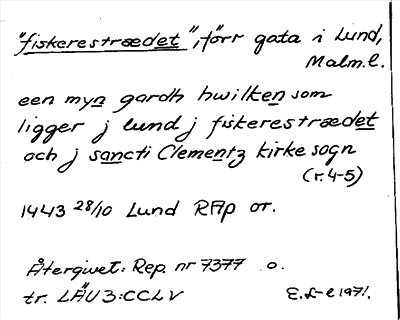 "fiskerestrædet", förr gata i Lund,
Malm.l.
een myn gardh hwilken som
ligger j lund j fiskerestrædet
och j sancti Clementz kirke sogn
(r.4-5)
1443 28/10 Lund RAp or.
Återgivet: Rep. nr 7377 o.
tr. LÄU 3:CCLV E.L-l 1971.